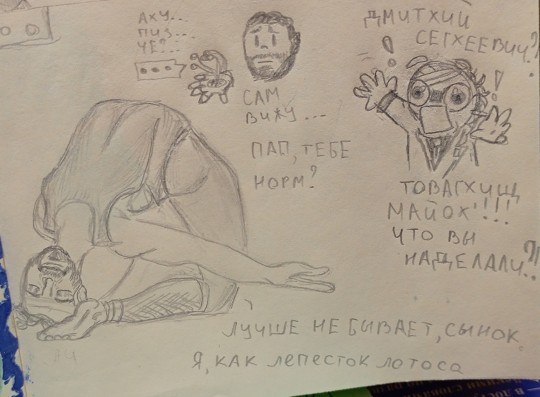 АХУ...
ПИЗ...
ЧЕ?..
САМ
ВИЖУ...
ПАП, ТЕБЕ
НОРМ?
ДМИТХИЙ
СЕГХЕЕВИЧ?!
ТОВАГХИЩ
МАЙОХ!!!
ЧТО ВЫ
НАДЕЛАЛИ?!
ЛУЧШЕ НЕ БЫВАЕТ, СЫНОК
Я, КАК ЛЕПЕСТОК ЛОТОСА